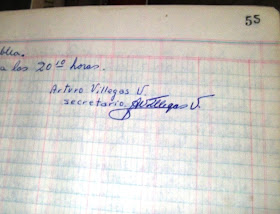 55
blea.
a las 20¹⁰ horas.
Arturo Villegas V.
secretario AVillegas V.